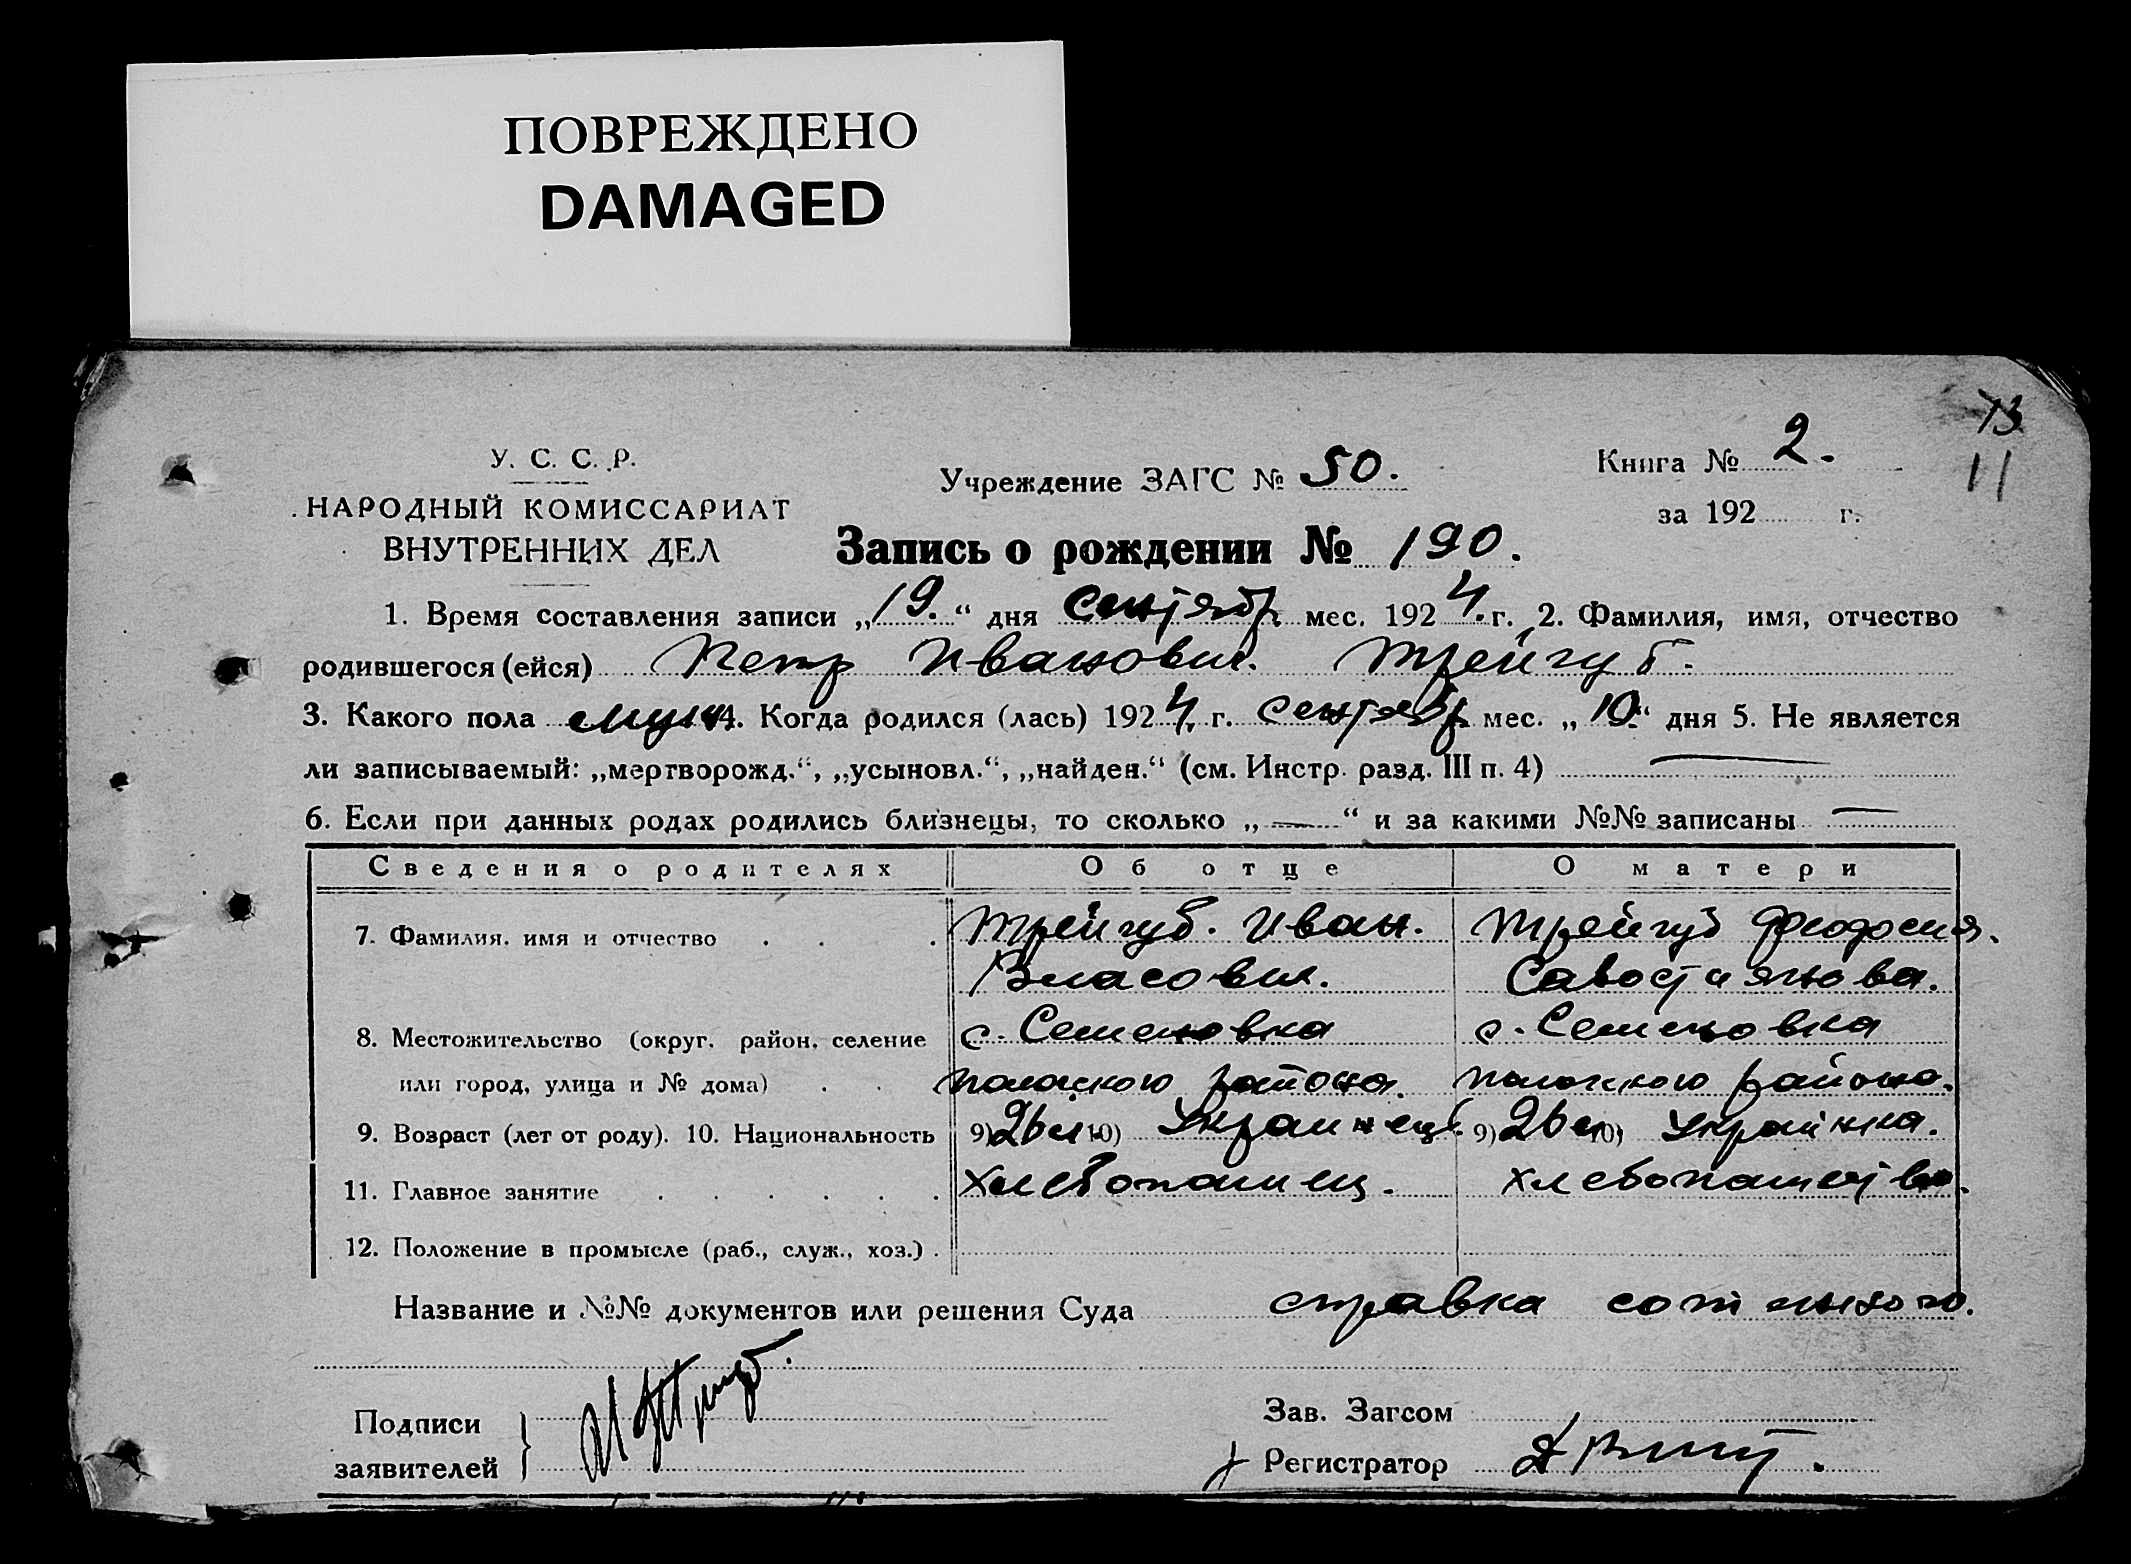 ПОВРЕЖДЕНО
DAMAGED
73
11
У. С. С. Р.
НАРОДНЫЙ КОМИССАРИАТ
ВНУТРЕННИХ ДЕЛ
Учреждение ЗАГС № 50.
Книга № 2.
за 192 г.
Запись о рождении № 190.
1. Время составления записи „19.“ дня сентябр мес. 1924. г. 2. Фамилия, имя, отчество
родившегося (ейся) Петр Иванович. Трейгуб.
3. Какого пола муж 4. Когда родился (лась) 1924. г. сентябр мес. „10“ дня 5. Не является
ли записываемый: „мертворожд.“, „усыновл.“, „найден.“ (см. Инстр. разд. III п. 4) —
6. Если при данных родах родились близнецы, то сколько „—“ и за какими №№ записаны —
Сведения о родителях Об отце О матери
7. Фамилия, имя и отчество Трейгуб. Иван. Трейгуб Феодосия.
Власович. Савостиянова.
8. Местожительство (округ, район, селение с. Семеновка с. Семеновка
или город, улица и № дома) района. района.
9. Возраст (лет от роду). 10. Национальность 9) 26 л 10) Украинец. 9) 26 л 10) Украинка.
11. Главное занятие Хлебопашец. хлебопашество.
12. Положение в промысле (раб., служ., хоз.)
Название и №№ документов или решения Суда справка
Подписи
заявителей
Зав. Загсом
Регистратор